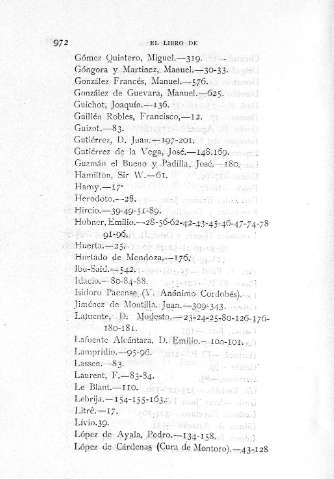 972 EL LIBRO DE
Gómez Quintero, Miguel.—319.
Góngora y Martínez, Manuel.—30-33.
González Francés, Manuel.—576.
González de Guevara, Manuel.—625.
Guichot, Joaquín.—136.
Guillén Robles, Francisco,—12.
Guizot.—83.
Gutiérrez, D. Juan.—197-201.
Gutiérrez de la Vega, José.—148.169.
Guzmán el Bueno y Padilla, José.—180.
Hamilton, Sir W.—61.
Hamy.—17·
Herodoto.—28.
Hircio.—39-49-51-89.
Hübner, Emilio.—28-56-62-42-43-45-46-47-74-78
91-96.
Huerta.—25.
Hurtado de Mendoza.—176.
Ibu-Said.—542.
Idacio.—80-84-88.
Isidoro Pacense (V. Anónimo Cordobés).
Jiménez de Montilla. Juan.—309-343.
Lafuente, D. Modesto.—23-24-25-80-126-176-
180-181.
Lafuente Alcántara, D. Emilio.—100-101.
Lampridio.—95-96.
Lassen.—83.
Laurent, F.—83-84.
Le Blant.—110.
Lebrija.—154-155-163.
Litré.—17.
Livio.39.
López de Ayala, Pedro.—134-158.
López de Cárdenas (Cura de Montoro).—43-128